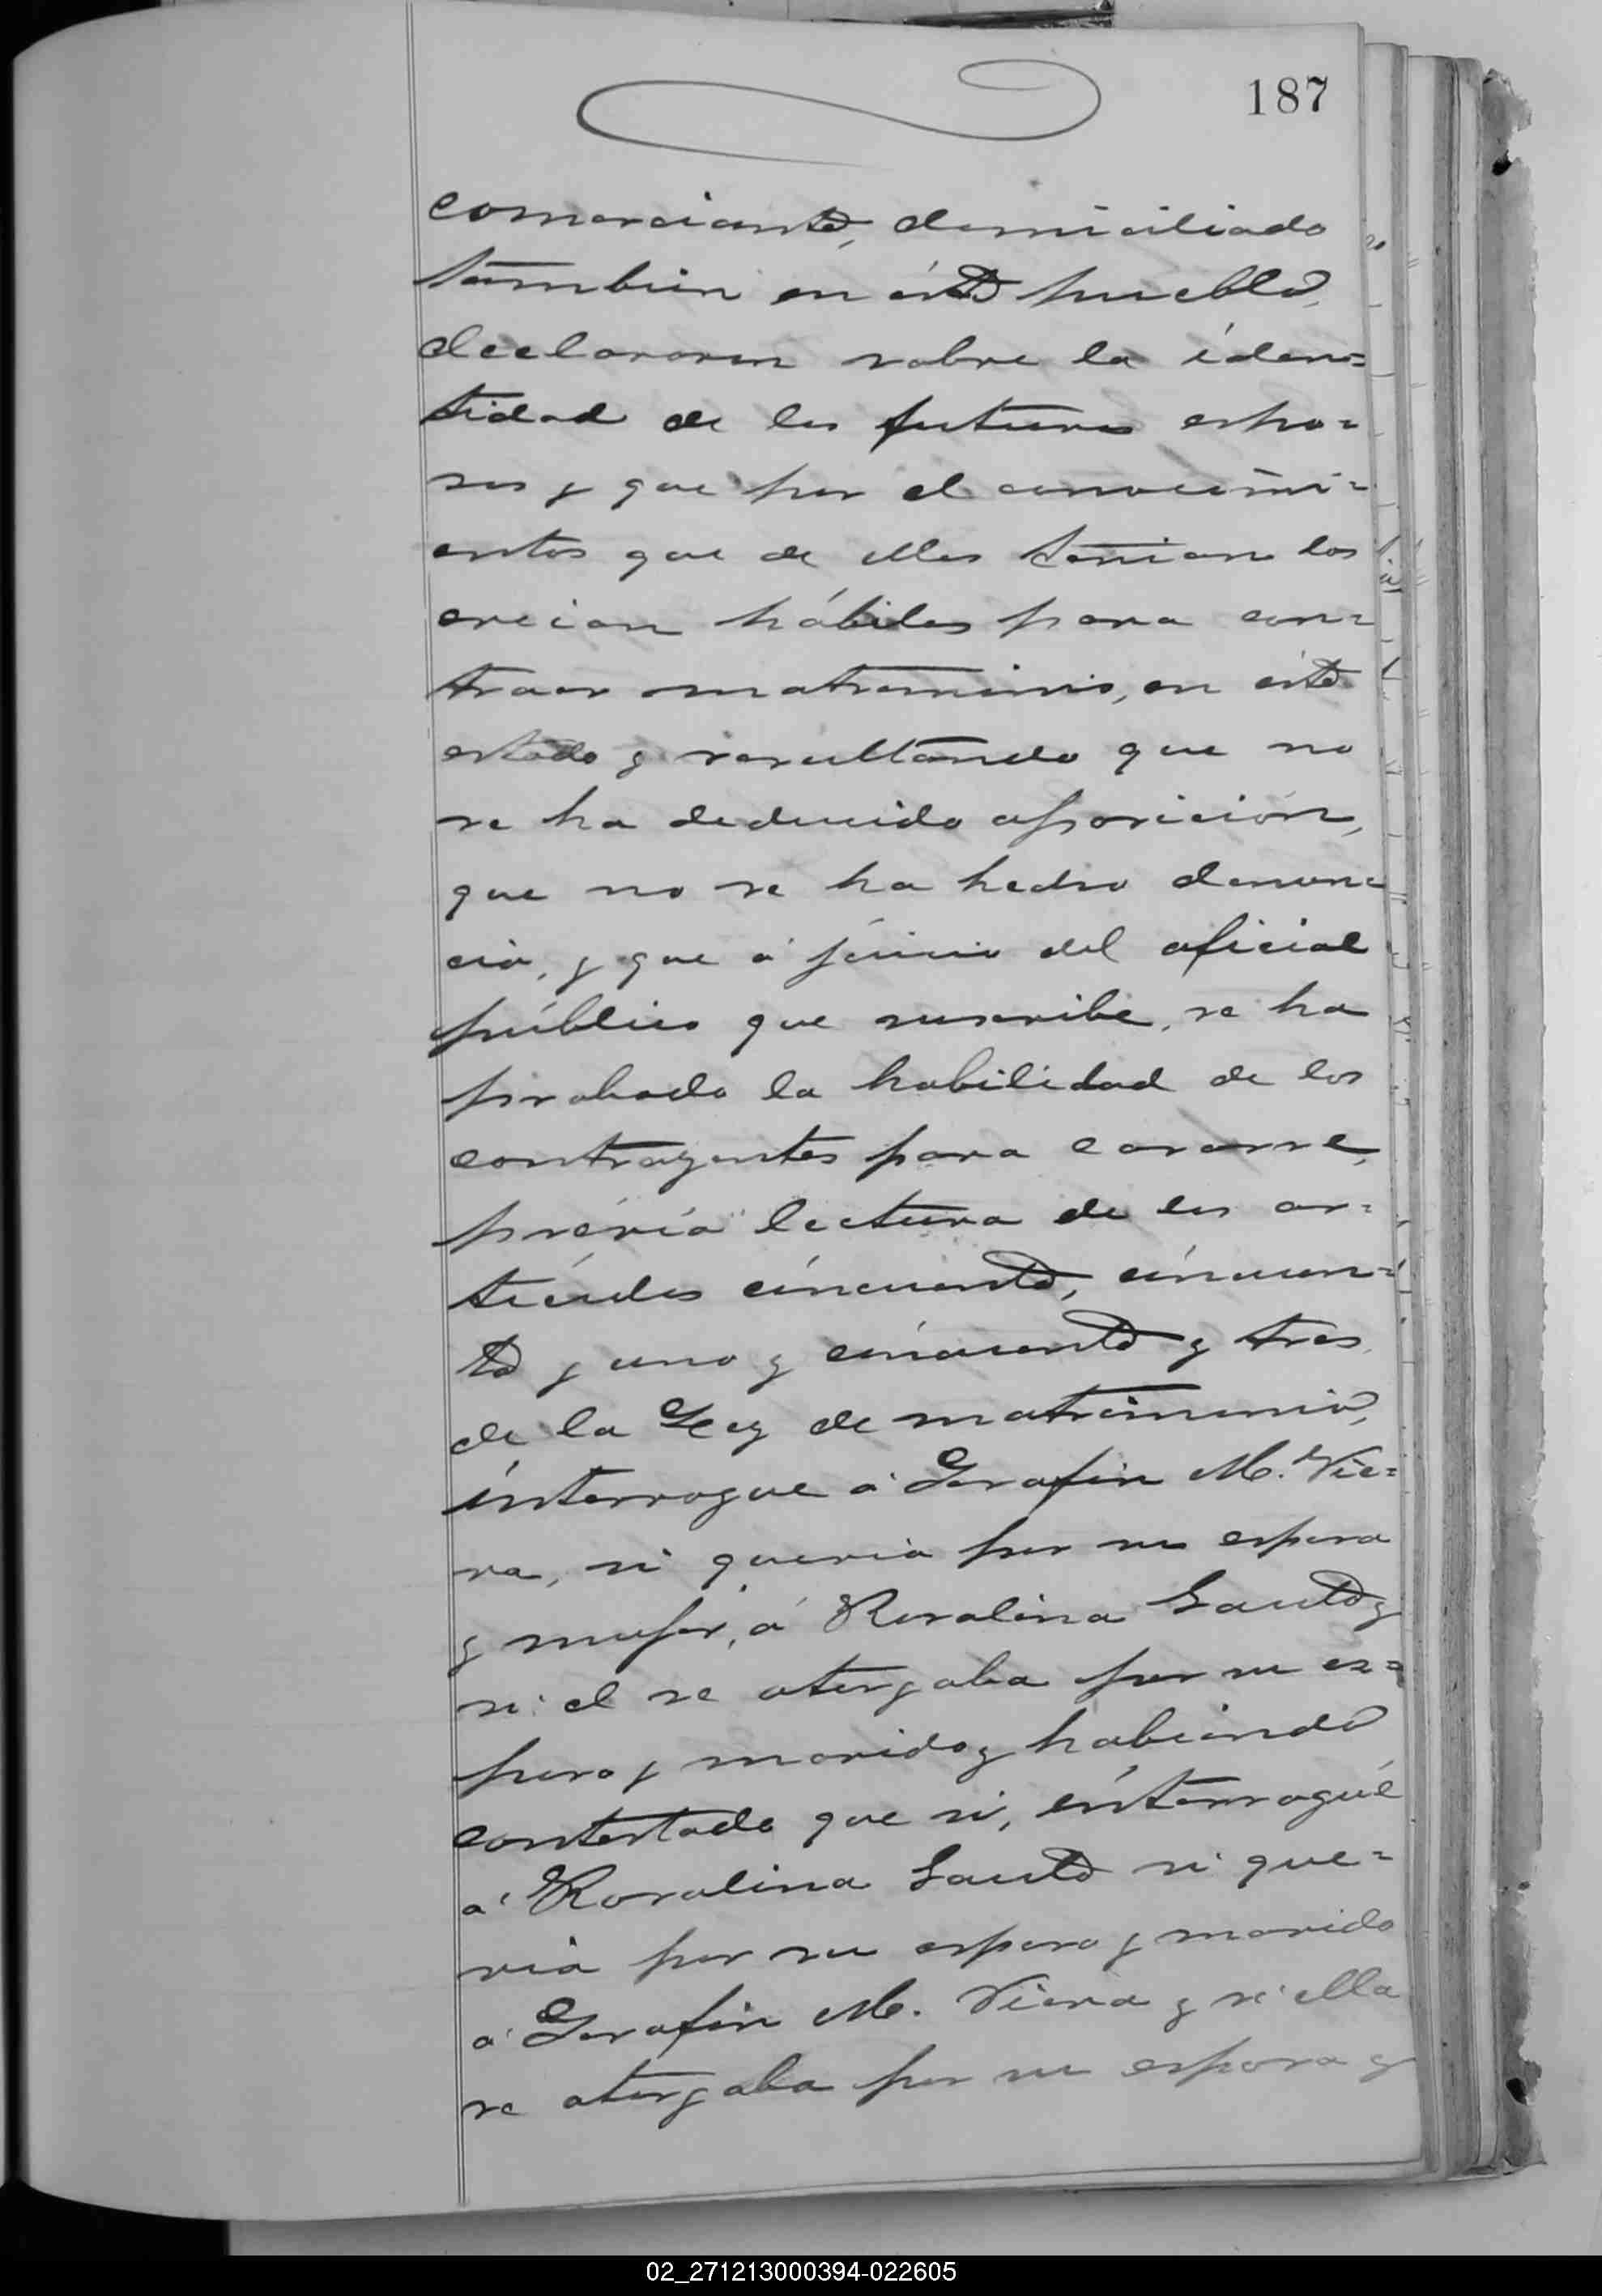 187
comerciante, domiciliado
tambien en éste pueblo,
declararon sobre la iden=
tidad de los futuros espo=
sos y que por el conocimi=
entos que de ellos tenian los
creian hábiles para con=
traer matrimonio, en éste
estado y resultando que no
se ha deducido oposicion,
que no se ha hecho denun=
cia, y que á juicio del oficial
público que suscribe, se ha
probado la habilidad de los
contrayentes para casarse,
prévia lectura de los ar=
tículos cincuenta, cincuen=
ta y uno y cincuenta y tres
de la Ley de matrimonio,
interrogue á Serafin M. Vie=
ra, si queria por su esposa
y mujer, á Rosalina Sauto y
si el se otorgaba por su es=
poso y marido y habiendo
contestado que si, interrogué
á Rosalina Sauto si que=
ria por su esposo y marido
á Serafin M. Viera y si ella
se otorgaba por su esposa y
02_271213000394-022605